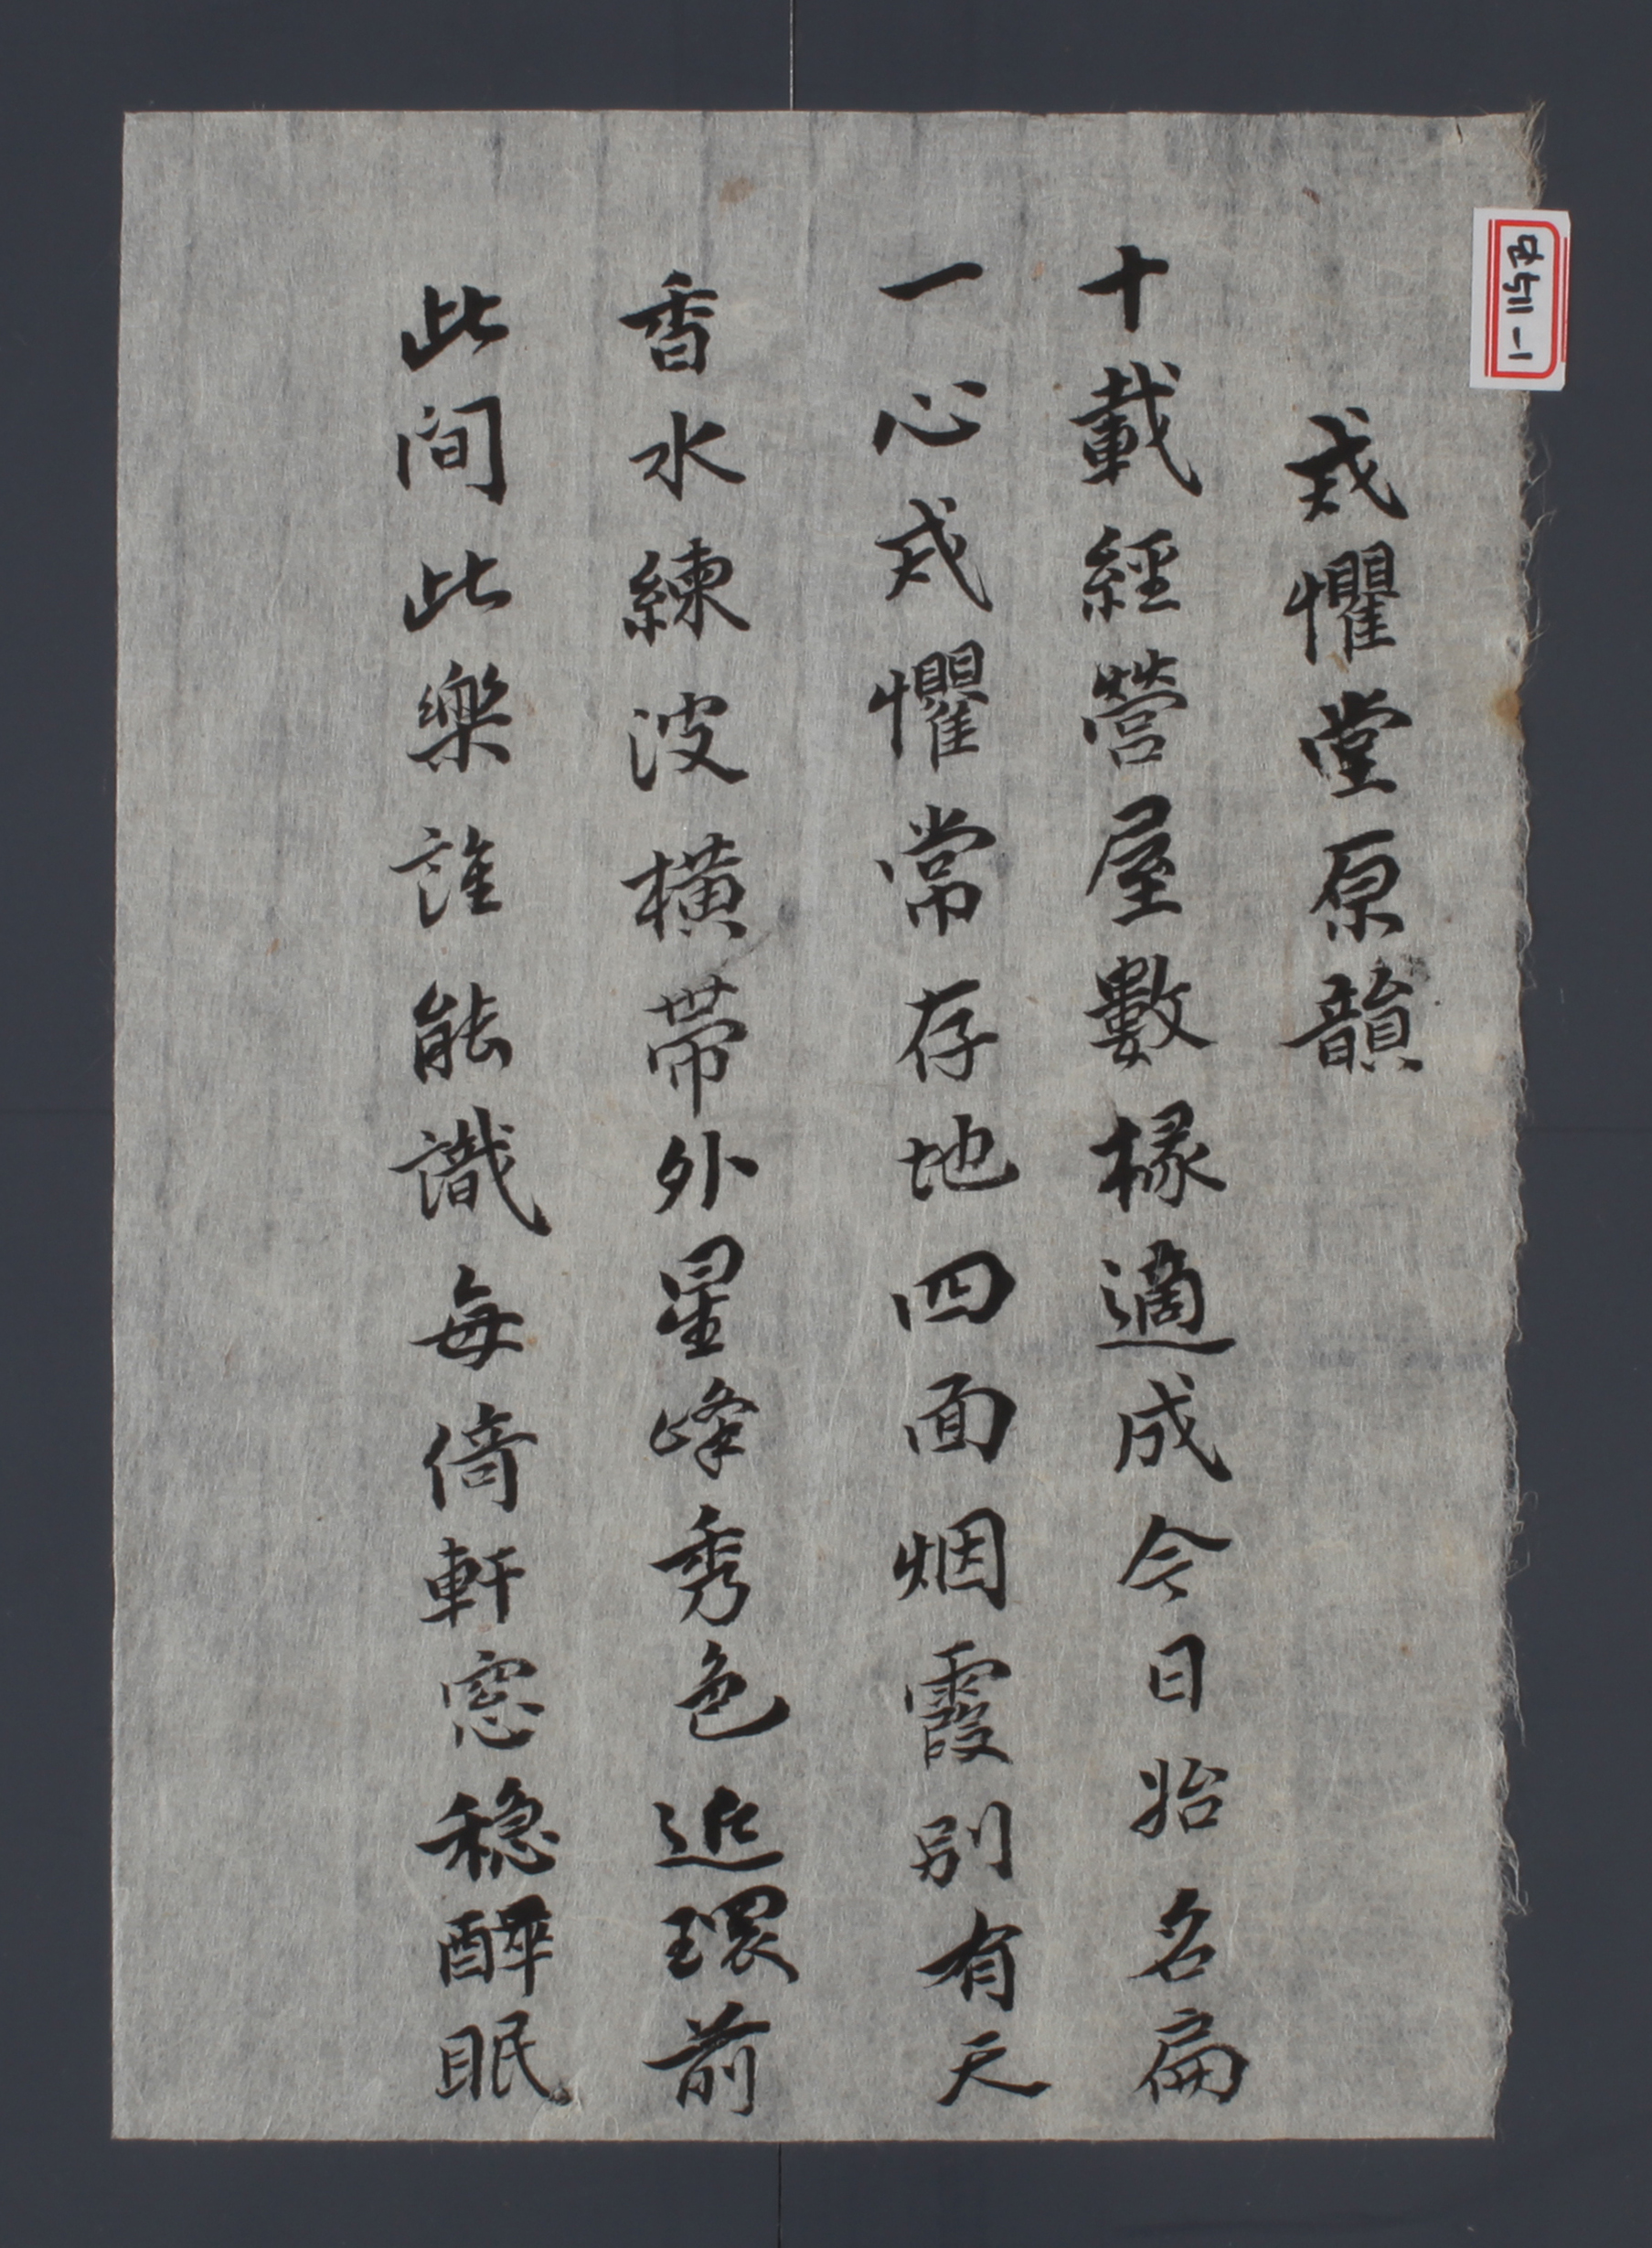 戒懼堂原韻
十載經營屋數椽適成今日始名扁
一心戒懼常存地四面烟霞別有天
香水練波橫帶外星峰秀色近環前
此间此樂誰能識每倚軒窓穩醉眠